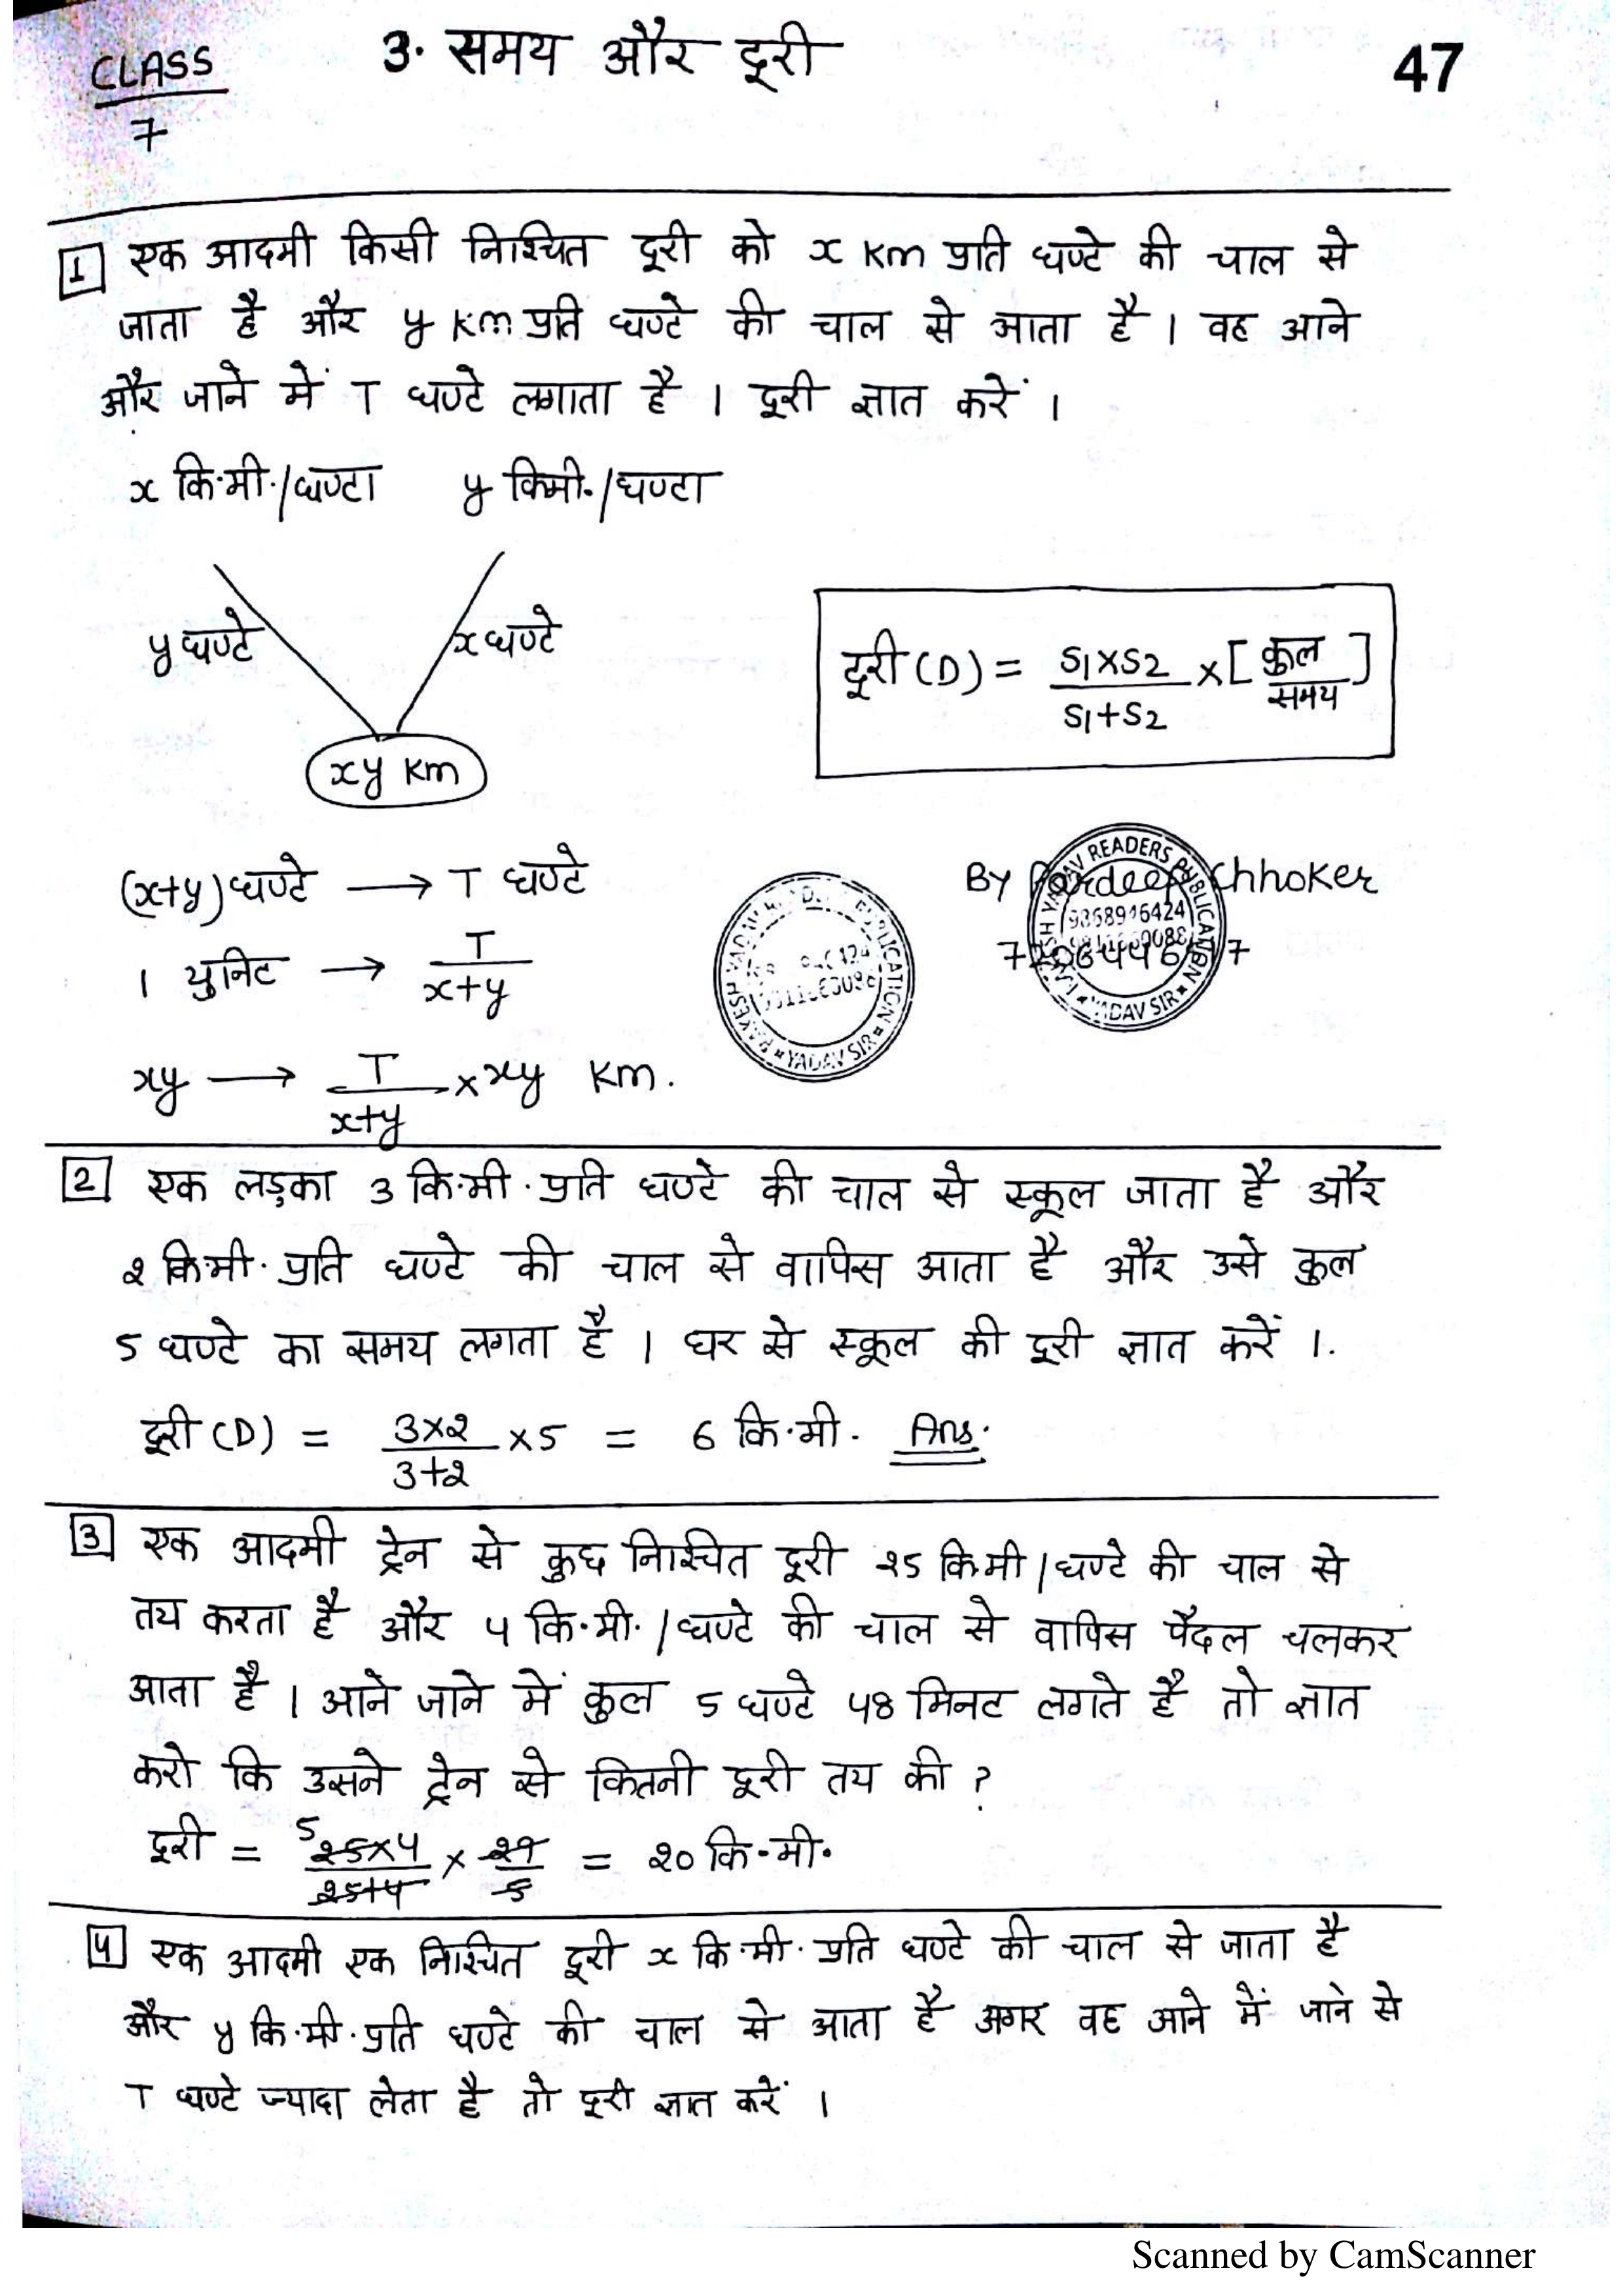 CLASS
7
3. समय और दूरी
47
1 एक आदमी किसी निश्चित दूरी को x Km प्रति घण्टे की चाल से
जाता है और y Km प्रति घण्टे की चाल से आता है । वह आने
और जाने में T घण्टे लगाता है । दूरी ज्ञात करें ।
x कि.मी./घण्टा y किमी./घण्टा
y घण्टे x घण्टे
xy Km
दूरी (D) = S1×S2/S1+S2 × [कुल/समय]
(x+y) घण्टे → T घण्टे
1 युनिट → T/x+y
xy → T/x+y × xy Km.
By Pardeep Chhoker
RAKESH YADAV READERS PUBLICATION
YADAV SIR
2 एक लड़का 3 कि.मी. प्रति घण्टे की चाल से स्कूल जाता है और
2 कि.मी. प्रति घण्टे की चाल से वापिस आता है और उसे कुल
5 घण्टे का समय लगता है । घर से स्कूल की दूरी ज्ञात करें ।.
दूरी (D) = 3×2/3+2 ×5 = 6 कि.मी. Ans.
3 एक आदमी ट्रेन से कुछ निश्चित दूरी 25 कि.मी/घण्टे की चाल से
तय करता है और 4 कि.मी./घण्टे की चाल से वापिस पैदल चलकर
आता है । आने जाने में कुल 5 घण्टे 48 मिनट लगते है तो ज्ञात
करो कि उसने ट्रेन से कितनी दूरी तय की ?
दूरी = 5 25×4/25+4 × 29/5 = 20 कि.मी.
4 एक आदमी एक निश्चित दूरी x कि.मी. प्रति घण्टे की चाल से जाता है
और y कि.मी. प्रति घण्टे की चाल से आता है अगर वह आने में जाने से
T घण्टे ज्यादा लेता है तो दूरी ज्ञात करें ।
Scanned by CamScanner